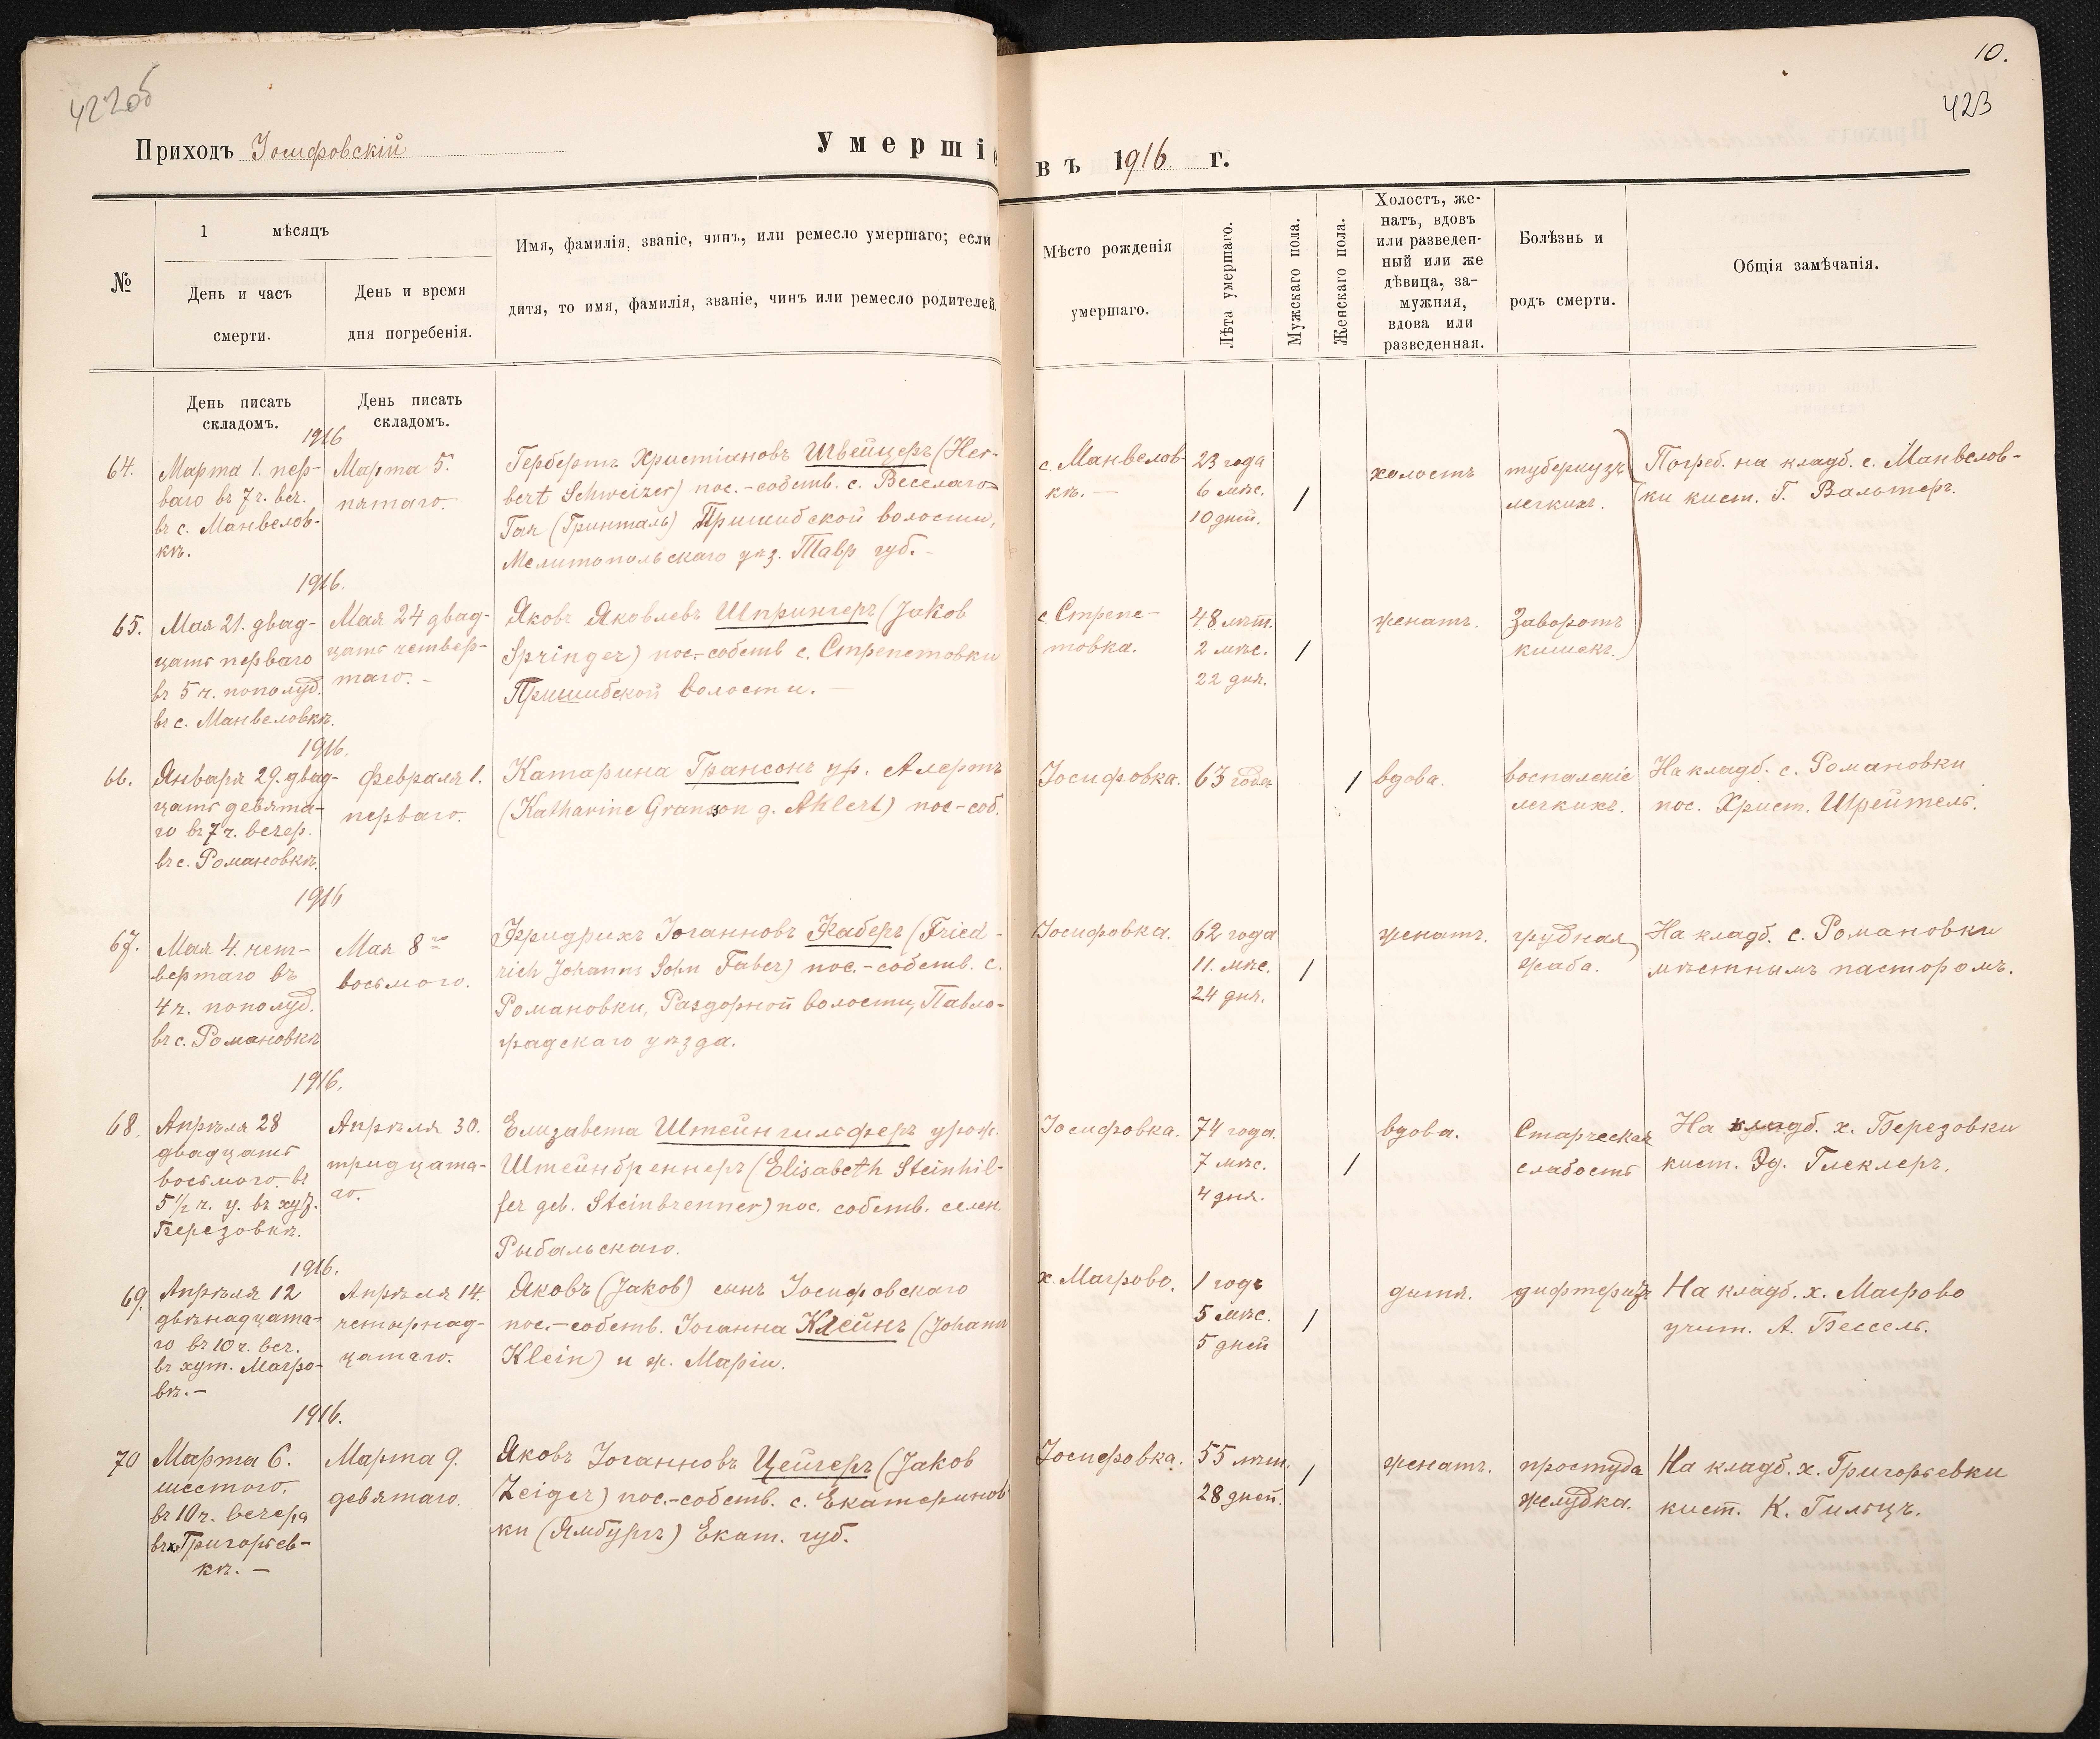 422об
10.
423
Приходъ Іосифовскій
Умершіе
въ 1916 г.
№
1 мѣсяцъ
День и часъ
смерти.
День и время
дня погребенія.
Имя, фамилія, званіе, чинъ, или ремесло умершаго; если
дитя, то имя, фамилія, званіе, чинъ или ремесло родителей.
Мѣсто рожденія
умершаго.
Лѣта умершаго.
Мужскаго пола.
Женскаго пола.
Холостъ, же-
натъ, вдовъ
или разведен-
ный или же
дѣвица, за-
мужняя,
вдова или
разведенная.
Болѣзнь и
родъ смерти.
Общія замѣчанія.
День писать
складомъ.
День писать
складомъ.
1916
64.
Марта 1. пер-
ваго въ 7 ч. веч.
въ с. Манвелов-
кѣ.
Марта 5.
пятаго.
Гербертъ Христіановъ Швейцеръ (Her-
bert Schweizer) пос.-собств. с. Веселаго-
Гая (Гринталь) Пришибской волости,
Мелитопольскаго уѣз. Тавр губ. -
с. Манвелов-
кѣ. -
23 года
6 мѣс.
10 дней.
/
холостъ
туберкулзъ
легкихъ.
Погреб. на кладб. с. Манвелов-
ки кист. Г. Вальтеръ.
1916.
65.
Мая 21. двад-
цать перваго
въ 5 ч. пополуд.
въ с. Манвеловкѣ.
Мая 24 двад-
цать четвер-
таго. -
Яковъ Яковлевъ Шпрингеръ (Jakob
Springer) пос.-собств с. Стрепетовки
Пришибской волости. -
с Стрепе-
товка.
48 лѣт.
2 мѣс.
22 дня.
/
женатъ.
Заворотъ
кишекъ.
1916.
66.
Января 29. двад-
цать девята-
го въ 7 ч. вечер.
въ с. Романовкѣ.
Февраля 1.
перваго.
Катарина Грансонъ ур. Алертъ
(Katharine Granson g. Ahlert) пос-соб.
Іосифовка.
63 года
/
вдова.
воспаленіе
легкихъ.
На кладб. с. Романовки
пос. Христ. Шрейтель.
1916
67.
Мая 4. чет-
вертаго въ
4 ч. пополуд.
въ с. Романовкѣ
Мая 8го
восьмого.
Фридрихъ Іоганновъ Фаберъ (Fried-
rich Johanns Sohn Faber) пос.-собств. с.
Романовки, Раздорной волости, Павло-
градскаго уѣзда.
Іосифовка.
62 года
11. мѣс.
24 дня.
/
женатъ.
грудная
жаба.
На кладб. с. Романовки
мѣстнымъ пасторомъ.
1916.
68.
Апрѣля 28
двадцать
восьмого. въ
5 1/2 ч. у. въ хут.
Березовкѣ.
Апрѣля 30.
тридцата-
го.
Елизавета Штейнгильферъ урож.
Штейнбреннеръ (Elisabeth Steinhil-
fer geb. Steinbrenner) пос. собств. селен.
Рыбальскаго.
Іосифовка.
74 года.
7 мѣс.
4 дня.
/
вдова.
Старческая
слабость
На кладб. х. Березовки
кист. Эд. Глеклеръ.
1916.
69.
Апрѣля 12
двѣнадцата-
го въ 10 ч. веч.
въ хут. Магро-
вѣ. -
Апрѣля 14.
четырнад-
цатаго.
Яковъ (Jakob) сынъ Іосифовскаго
пос.-собств. Іоганна Клейнъ (Johann
Klein) и ж. Маріи.
х. Магрово.
1 годъ
5 мѣс.
5 дней
/
дитя.
дифтеритъ
На кладб. х. Магрово
учит. А. Бессель.
1916.
70
Марта 6.
шестого.
въ 10 ч. вечера
въ х Григорьев-
кѣ. -
Марта 9.
девятаго.
Яковъ Іоганновъ Цейгеръ (Jakob
Zeiger) пос.-собств. с. Екатеринов-
ки (Ямбургъ) Екат. губ.
Іосифовка.
55 лѣт.
28 дней.
/
женатъ.
простуда
желудка.
На кладб. х. Григорьевки
кист. К. Гильцъ.